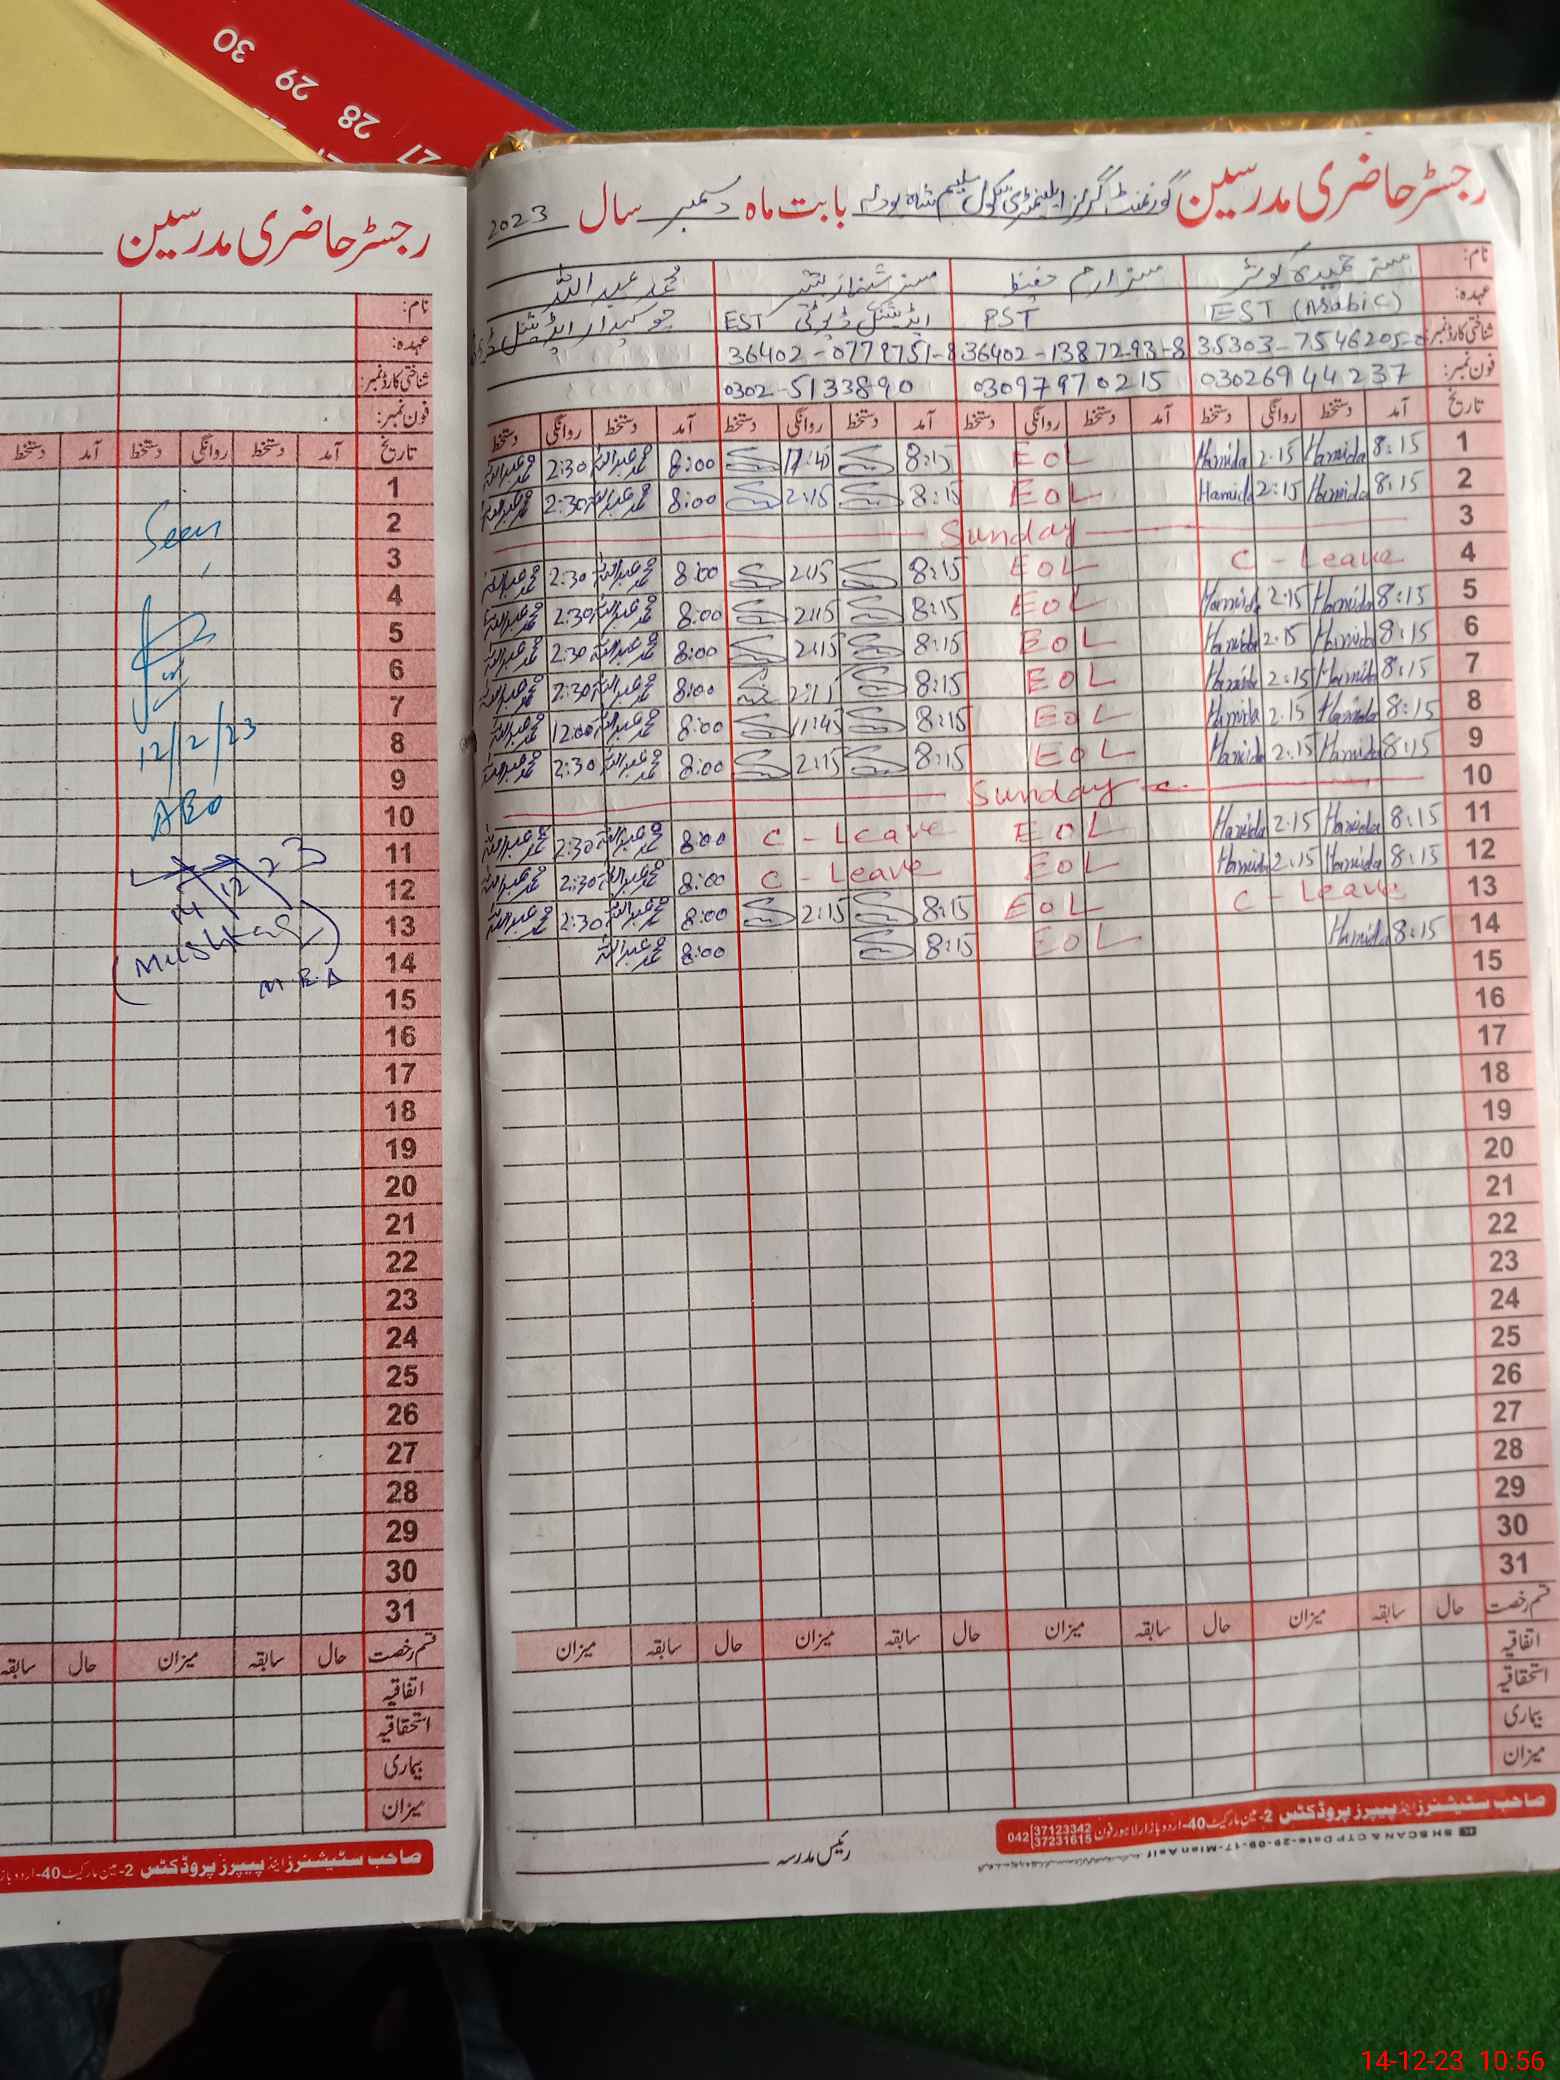 30
29
28
27
رجسٹر حاضری مدرسین گورنمنٹ گرلز ایلیمنٹری سکول سلیم شاہ بودلہ بابت ماہ دسمبر سال 2023
نام: مسز حمیدہ کوثر مسز ارم حفیظ مسز شہناز محمد عبداللہ
عہدہ: EST (Arabic) PST EST ایڈیشنل ڈیوٹی چوکیدار ایڈیشنل
شناختی کارڈ نمبر: 35303-7546205 36402-1387293-8 36402-0779751-8
فون نمبر: 03026944237 03097970215 0302-5133890
تاریخ آمد دستخط روانگی دستخط آمد دستخط روانگی دستخط آمد دستخط روانگی دستخط آمد دستخط روانگی دستخط
1 8:15 Hamida 2:15 Hamida EOL 8:15 11:45 8:00 محمد عبداللہ 2:30 محمد عبداللہ
2 8:15 Hamida 2:15 Hamida EOL 8:15 2:15 8:00 محمد عبداللہ 2:30 محمد عبداللہ
3 Sunday
4 C-Leave EOL 8:15 2:15 8:00 محمد عبداللہ 2:30 محمد عبداللہ
5 8:15 Hamida 2:15 Hamida EOL 8:15 2:15 8:00 محمد عبداللہ 2:30 محمد عبداللہ
6 8:15 Hamida 2:15 Hamida EOL 8:15 2:15 8:00 محمد عبداللہ 2:30 محمد عبداللہ
7 8:15 Hamida 2:15 Hamida EOL 8:15 2:15 8:00 محمد عبداللہ 2:30 محمد عبداللہ
8 8:15 Hamida 2:15 Hamida EOL 8:15 11:45 8:00 محمد عبداللہ 12:00 محمد عبداللہ
9 8:15 Hamida 2:15 Hamida EOL 8:15 2:15 8:00 محمد عبداللہ 2:30 محمد عبداللہ
10 Sunday
11 8:15 Hamida 2:15 Hamida EOL C-Leave 8:00 محمد عبداللہ 2:30 محمد عبداللہ
12 8:15 Hamida 2:15 Hamida EOL C-Leave 8:00 محمد عبداللہ 2:30 محمد عبداللہ
13 C-Leave EOL 8:15 2:15 8:00 محمد عبداللہ 2:30 محمد عبداللہ
14 8:15 Hamida EOL 8:15 8:00 محمد عبداللہ
15
16
17
18
19
20
21
22
23
24
25
26
27
28
29
30
31
قسم رخصت حال سابقہ میزان حال سابقہ میزان حال سابقہ میزان حال سابقہ میزان
اتفاقیہ
استحقاقیہ
بیماری
میزان
صاحب سٹیشنرز اینڈ پیپرز پروڈکٹس 2-مین مارکیٹ 40-اردو بازار لاہور فون 042 37123342 37231615
SH SCAN & CTP Date-29-09-17-Mian Asif
رئیس مدرسہ
رجسٹر حاضری مدرسین
نام:
عہدہ:
شناختی کارڈ نمبر:
فون نمبر:
تاریخ آمد دستخط روانگی دستخط آمد دستخط
1
2 Seen
3
4
5
6
7
8 12/12/23
9
10 AEO
11
12 14/12/23
13
14 (Mushtaq)
15 MEA
16
17
18
19
20
21
22
23
24
25
26
27
28
29
30
31
قسم رخصت حال سابقہ میزان حال سابقہ
اتفاقیہ
استحقاقیہ
بیماری
میزان
صاحب سٹیشنرز اینڈ پیپرز پروڈکٹس 2-مین مارکیٹ 40-اردو بازار
14-12-23 10:56